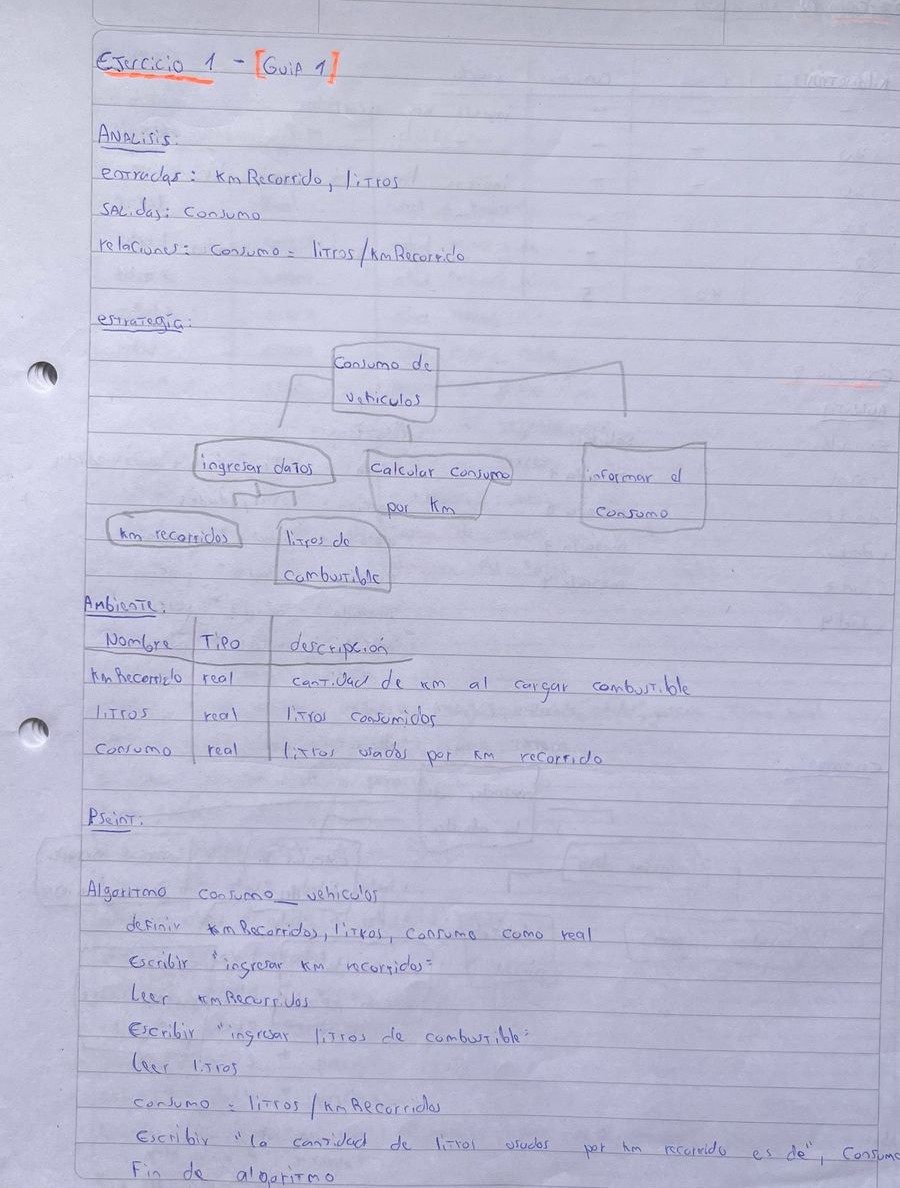 Ejercicio 1 - [Guia 1]
Analisis:
entradas: kmRecorrido, litros
Salidas: Consumo
relaciones: Consumo = litros/kmRecorrido
estrategía:
Consumo de
vehiculos
ingresar datos
Calcular consumo
por Km
informar el
consumo
km recorridos
litros de
combustible
Ambiente:
Nombre Tipo descripción
kmRecorrido real cantidad de km al cargar combustible
litros real litros consumidos
Consumo real litros usados por km recorrido
Pseint:
Algoritmo consumo_vehiculos
definir kmRecorridos, litros, consumo como real
Escribir "ingresar km recorridos="
Leer kmRecorridos
Escribir "ingresar litros de combustible:
Leer litros
consumo = litros/kmRecorridos
Escribir "la cantidad de litros usados por km recorrido es de", Consumo
Fin de algoritmo